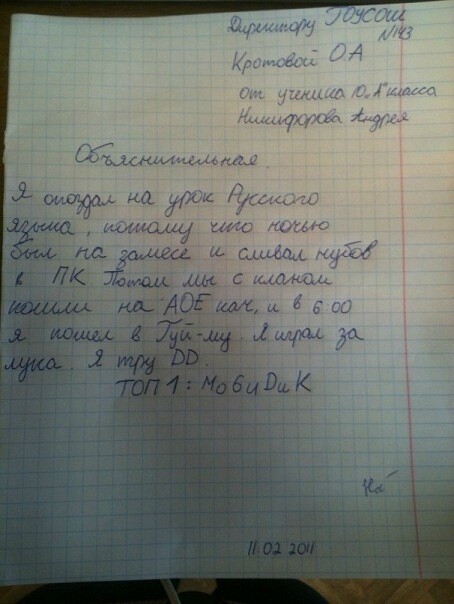 Директору ГОУСОШ
№143
Кротовой О А
от ученика 10 "А" класса
Никифорова Андрея
Объяснительная.
Я опоздал на урок Русского
языка, потому что ночью
был на замесе и сливал нубов
в ПК. Потом мы с кланом
пошли на АОЕ кач, и в 6.00
я пошел в Гуй-му. Я играл за
лука. Я тру DD.
ТОП 1: МоБиDиК
11.02.2011